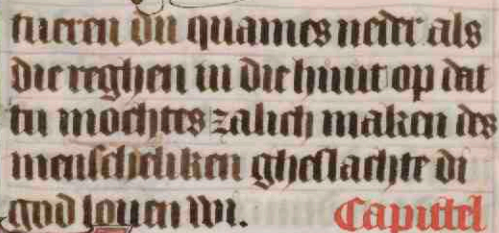 tueren du quames neder als
die reghen in die huut op dat
tu mochtes zalich maken des
menscheliken gheslachte di
god louen wi. Capittel